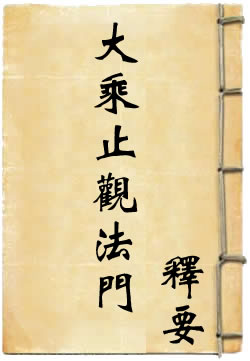 大乘止觀法門
釋要